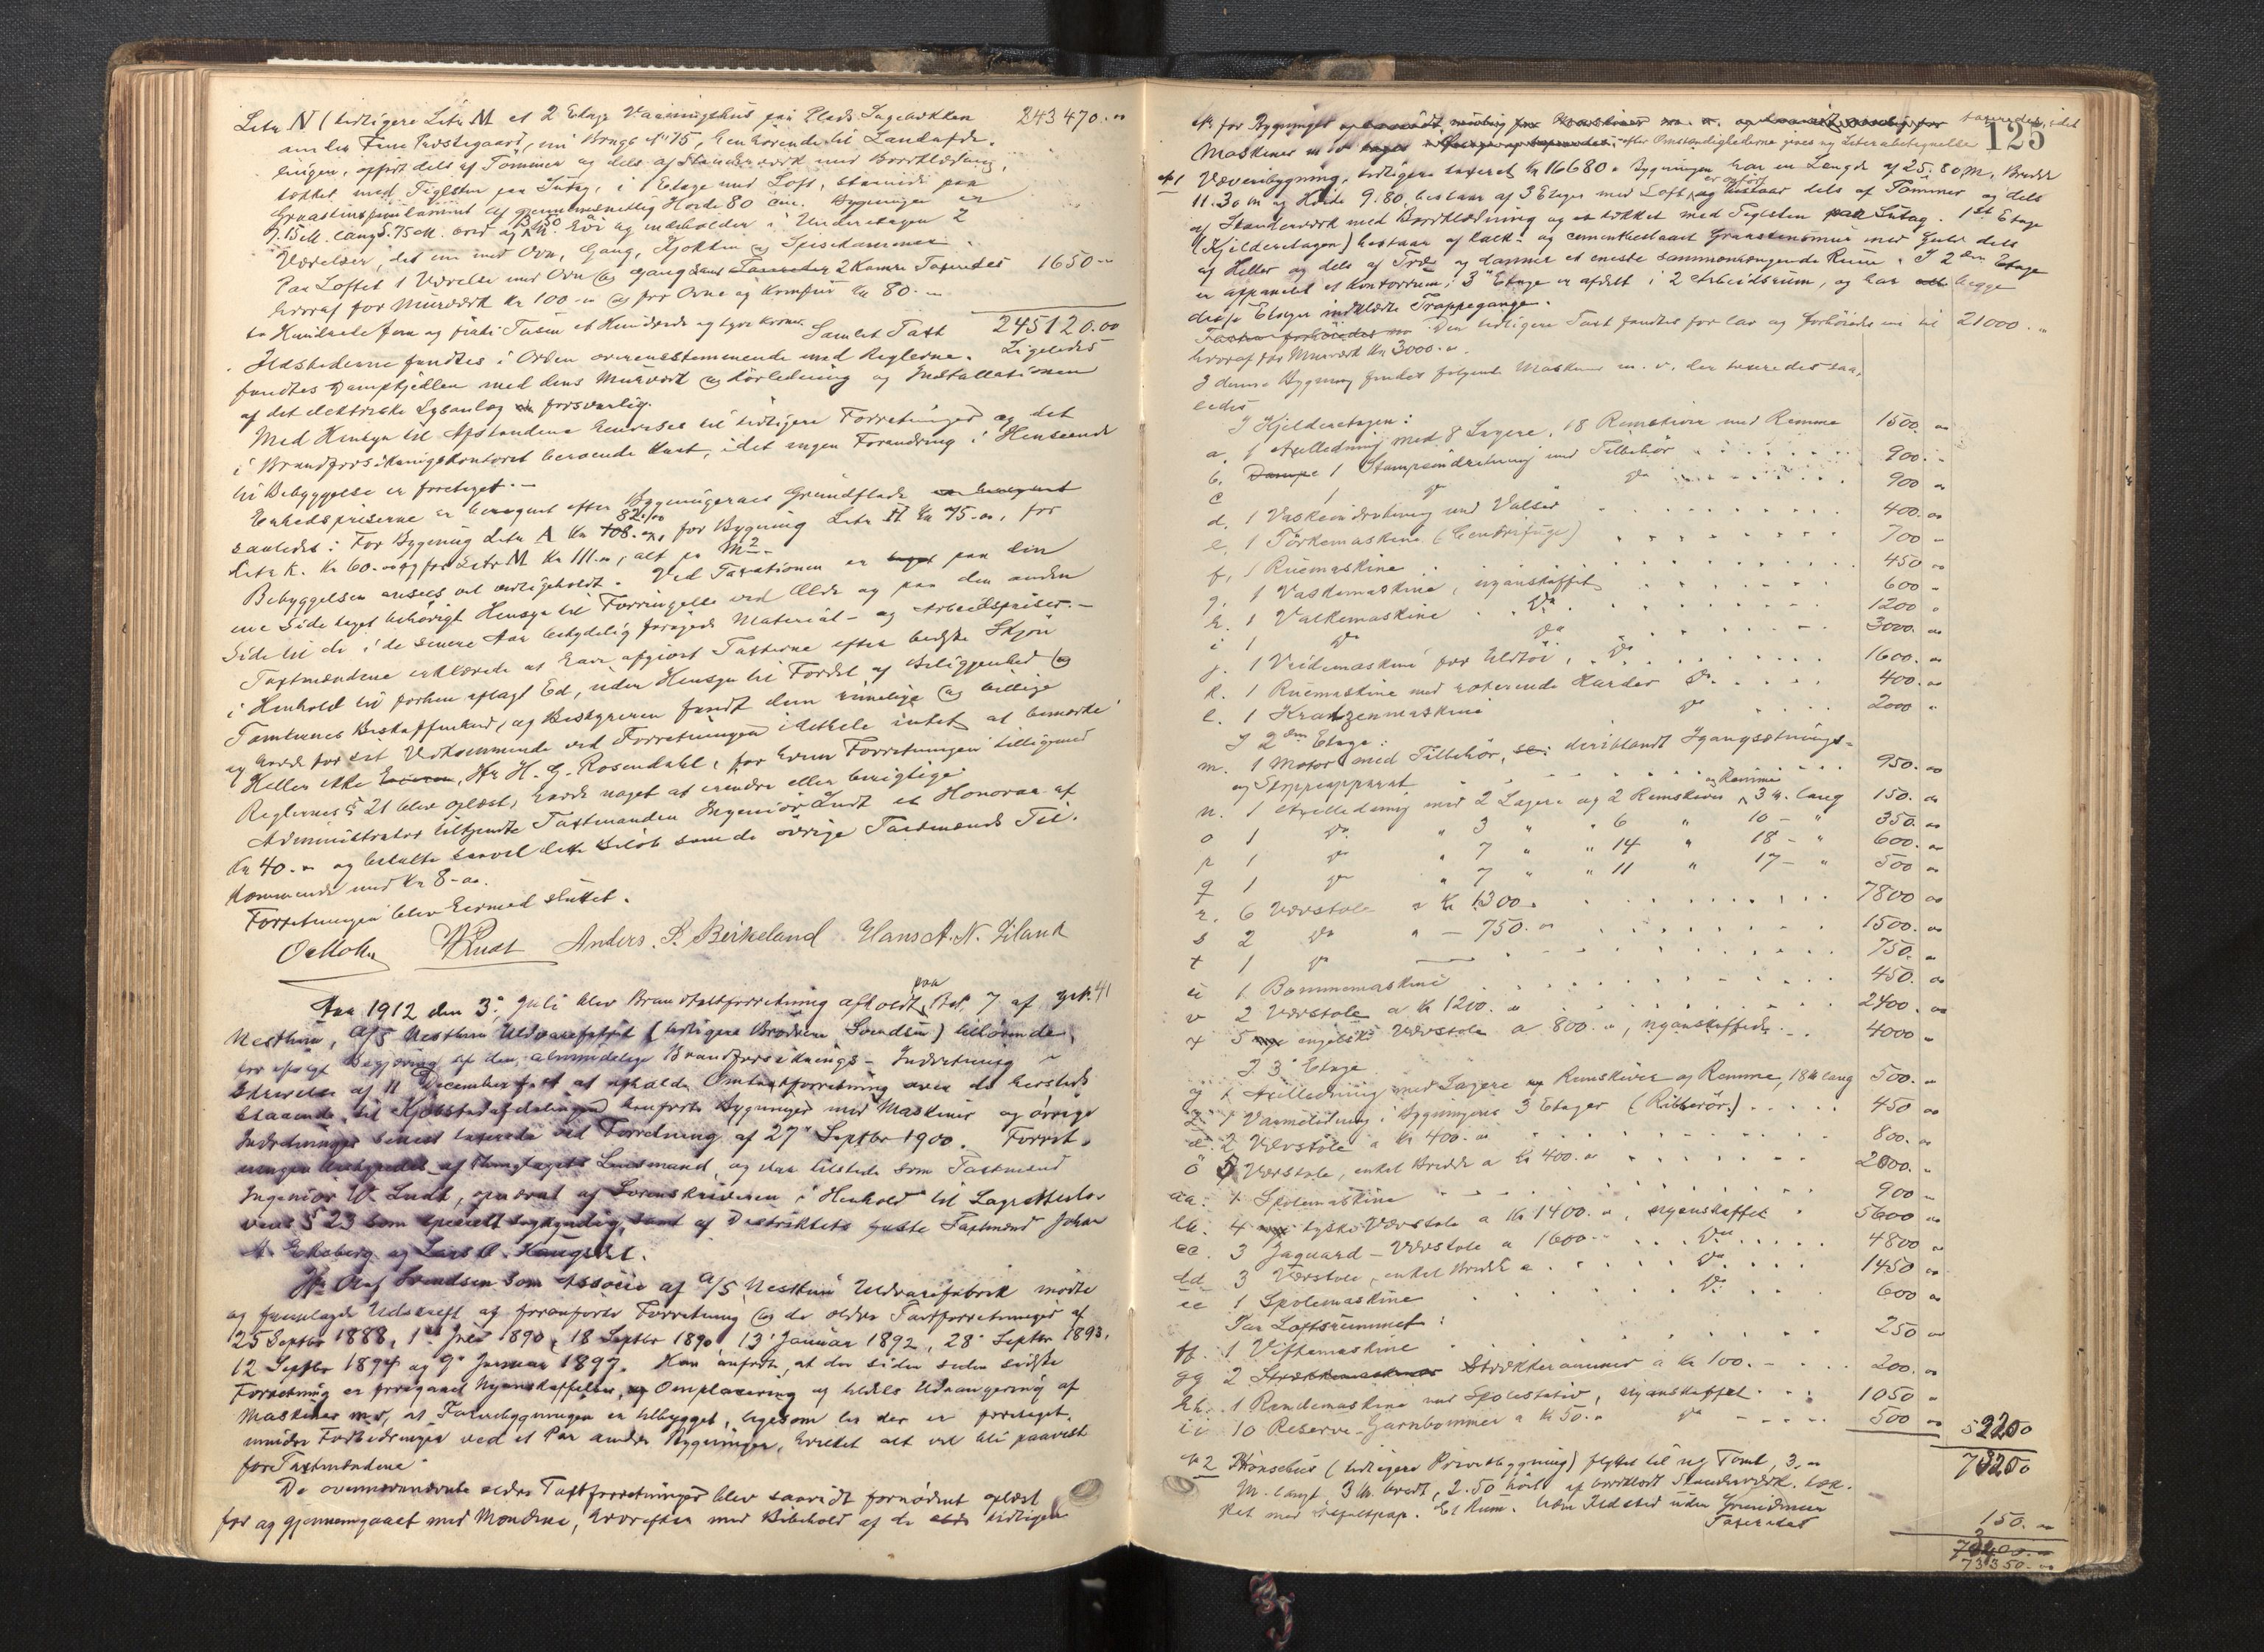 Litr N (tidligere Litr M et 2 Etage Vaaningshus paa Plads Sagebakken 243470.00
under Fane Præstegaard, nu Brugs No 15, henhørende til Landafde-
lingen, opført dels af Tømmer og dels af Stænderværk med Bordklædning,
tækket med Teglsten paa Sutag, i 1 Etage med Loft, staaende paa
Graastensfundament af gjennemsnitlig Høide 80 cm. Bygningen er
9.15 M. lang 5.75 M. bred og 3.50 M. høi og indeholder i Underetagen 2
Værelser, det ene med Ovn, Gang, Kjøkken og Spisekammer.
Paa Loftet 1 Værelse med Ovn og Gang samt 2 Kamre Taxeredes 1650.-
hvoraf for Murværk Kr 100.- og for Ovne og Komfur Kr 80.-
to Hundrede fem og firti Tusen et Hundrede og tyve Kroner. Samlet Taxt 245120.00
Ildstederne fandtes i Orden overensstemmende med Reglerne. Ligeledes
fandtes Dampkjedlen med dens Murværk og Rørledning og Installationen
af det elektriske Lysanlæg forsvarlig.
Med Hensyn til Afstandene henvises til tidligere Forretninger og det
i Brandforsikringskontoret beroende Kart, idet ingen Forandring i Henseende
til Bebyggelse er foretaget. -
Enhedspriserne er beregnet efter Bygningernes Grundflade
saaledes: For Bygning Litr A Kr 82.00, for Bygning Litr H Kr 75.00, for
Litr K. Kr 60.00 og for Litr M Kr 111.00, alt pr M2.
Bebyggelsen ansees vel vedligeholdt. Ved Taxationen er paa den
ene Side taget behørigt Hensyn til Forringelse ved Ælde og paa den anden
Side til de i de senere Aar betydelig forøgede Material- og Arbeidspriser. -
Taxtmændene erklærede at have afgivet Taxterne efter bedste Skjøn
i Henhold til forhen aflagt Ed, uden Hensyn til Fordel af Beliggenhed og
Tomternes Beskaffenhed, og Bestyreren fandt dem rimelige og billige
og havde for sit Vedkommende ved Forretningen idethele intet at bemærke.
Heller ikke Hr H. G. Rosendahl, for hvem Forretningen tilligemed
Reglernes § 21 blev oplæst, havde noget at erindre eller berigtige.
Administrator tilkjendte Taxtmanden Ingeniør Lndt et Honorar af
Kr 40.00 og betalte saavel dette Beløb som de øvrige Taxtmænds Til-
kommende med Kr 8.00.
Forretningen blev hermed sluttet.
Anders. P. Birkeland Hans A. N. Øiland
Aar 1912 den 3. Juli blev Brandtaxtforretning afholdt paa Bno 7 af Gno. 41
Nesttun, A/S Nesttun Uldvarefabrik (tidligere Brødrene Svendsen) tilhørende,
ifølge Begjæring af den almindelige Brandforsikrings-Indretning
Skrivelse af 11 December f. A. at afholde Omtaxtforretning over de hersteds
staaende, til Kjøbstadafdelingen henførte Bygninger med Maskiner og øvrige
Indretninger senest taxerede ved Forretning af 27 Septbr 1900. Forret-
ningen bestyredes af Thinglagets Lensmand, og var tilstede som Taxtmænd
Ingeniør W. Lndt, opnævnt af Sorenskriveren i Henhold til Lagrettelo-
vens § 23 som specielt sagkyndig, samt af Distriktets faste Taxtmænd Johan
A. Ekeberg og Lars O. Haugsdal.
Hr Olaf Svendsen som Associe af A/S Nesttun Uldvarefabrik mødte
og fremlagde Udskrift af foranførte Forretning og de ældre Taxtforretninger af
25 Septbr 1888, 1ste Juli 1890, 18 Septbr 1890, 13 Januar 1892, 28 Septbr 1893,
12 Septbr 1894 og 9 Januar 1897. Han anførte, at der siden sidste
Forretning er foregaaet Nyanskaffelse, Omplacering og tildels Udrangering af
Maskiner m.v., at Farvebygningen er tilbygget, ligesom der er foretaget
mindre Forbedringer ved et Par andre Bygninger, hvilket alt vil bli paavist
for Taxtmændene.
De ovennævnte ældre Taxtforretninger blev saavidt fornødent oplæst
for og gjennemgaaet med Mændene, hvorefter med Bibehold af de tidligere
125
No for Bygninger taxeredes, idet
Maskiner efter Omstændighederne gives ny Literabetegnelse
No 1 Væveribygning, tidligere taxeret Kr 16680.- Bygningen har en Længde af 25.80 M, Bredde
11.30 M og Høide 9.80, bestaar af 3 Etager med Loft, er opført dels af Tømmer og dels
af Stænderværk med Bordklædning og er tækket med Teglsten paa Sutag. 1ste Etage
(Kjelderetagen) bestaar af kalk- og cementbestaaet Graastensmur med Gulv dels
af Heller og dels af Træ og danner et eneste sammenhængende Rum. I 2den Etage
er afpanelet et Kontorrum, 3 Etage er afdelt i 2 Arbeidsrum, og har begge
disse Etager indklædte Trappegange.
Den tidligere Taxt fandtes for lav og forhøiedes nu til 21000.-
hvoraf for Murværk Kr 3000.00.
I denne Bygning findes følgende Maskiner m. v. der taxeredes saa-
ledes
I Kjelderetagen:
a. 1 Axelledning med 8 Lagere, 18 Remskiver med Remme 1500.00
b. 1 Stampeindretning med Tilbehør 900.-
c 1 do do 900.-
d. 1 Vaskeindretning med Valser 400.00
e. 1 Tørkemaskine (Centrifuge) 700.-
f. 1 Ruemaskine 450.00
g. 1 Vaskemaskine, nyanskaffet 600.-
h. 1 Valkemaskine do 1200.-
i 1 do do 3000.00
j. 1 Vridemaskine for Uldtøi, do 1600.00
k. 1 Ruemaskine med roterende Karder do 400.00
l. 1 Kratzenmaskine do 2000.-
I 2den Etage:
m. 1 Motor med Tilbehør, deriblandt Igangsætnings-
og Stoppeapparat 950.00
n. 1 Axelledning med 2 Lagere og 2 Remskiver og Remme 3 M. lang 150.00
o 1 do " 3 " " 6 " 10 - " 350.00
p 1 do " 7 " " 14 " 18 - " 600.00
q 1 do " 7 " " 11 " 17 - " 500.00
r. 6 Vævstole a Kr 1300.- 7800.00
s 2 do a - 750.00 1500.00
t 1 do 750.-
u 1 Bommemaskine 450.00
v 2 Vævstole a Kr 1200.- 2400.00
x 5 engelske Vævstole a 800.-, nyanskaffede 4000.-
I 3 Etage
y 1 Axelledning med Lagere og Remskiver og Remme, 18 M lang 500.-
z. 1 Varmeledning i Bygningens 3 Etager (Ribberør.) 450.00
æ. 2 Vævstole a Kr 400.00 800.-
ø 5 Vævstole, enkel Bredde a Kr 400.00 2000.-
aa. 1 Spolemaskine 900.-
bb. 4 tyske Vævstole a Kr 1400.-, nyanskaffet 5600.00
cc. 3 Jaquard-Vævstole a 1600.- do 4800.-
dd 3 Vævstole, enkel Bredde a do 1450.00
ee 1 Spolemaskine do 600.00
Paa Loftsrummet:
ff. 1 Viftemaskine 250.00
gg 2 Strækkerammer a Kr 100.- 200.00
hh. 1 Rendemaskine med Spolestativ, nyanskaffet 1050.-
ii 10 Reserve-Garnbommer a Kr 50.- do 500.00 52250
73250
No 2 Hønsehus (tidligere Privetbygning) flyttet til ny Tomt, 3.00
M. langt 3 M. bredt, 2.50 høit af bordklædt Stænderværk, tæk-
ket med Asfaltpap. Et Rum. Uden Ildsted uden Grundmur
Taxeredes 150.00
73350.00